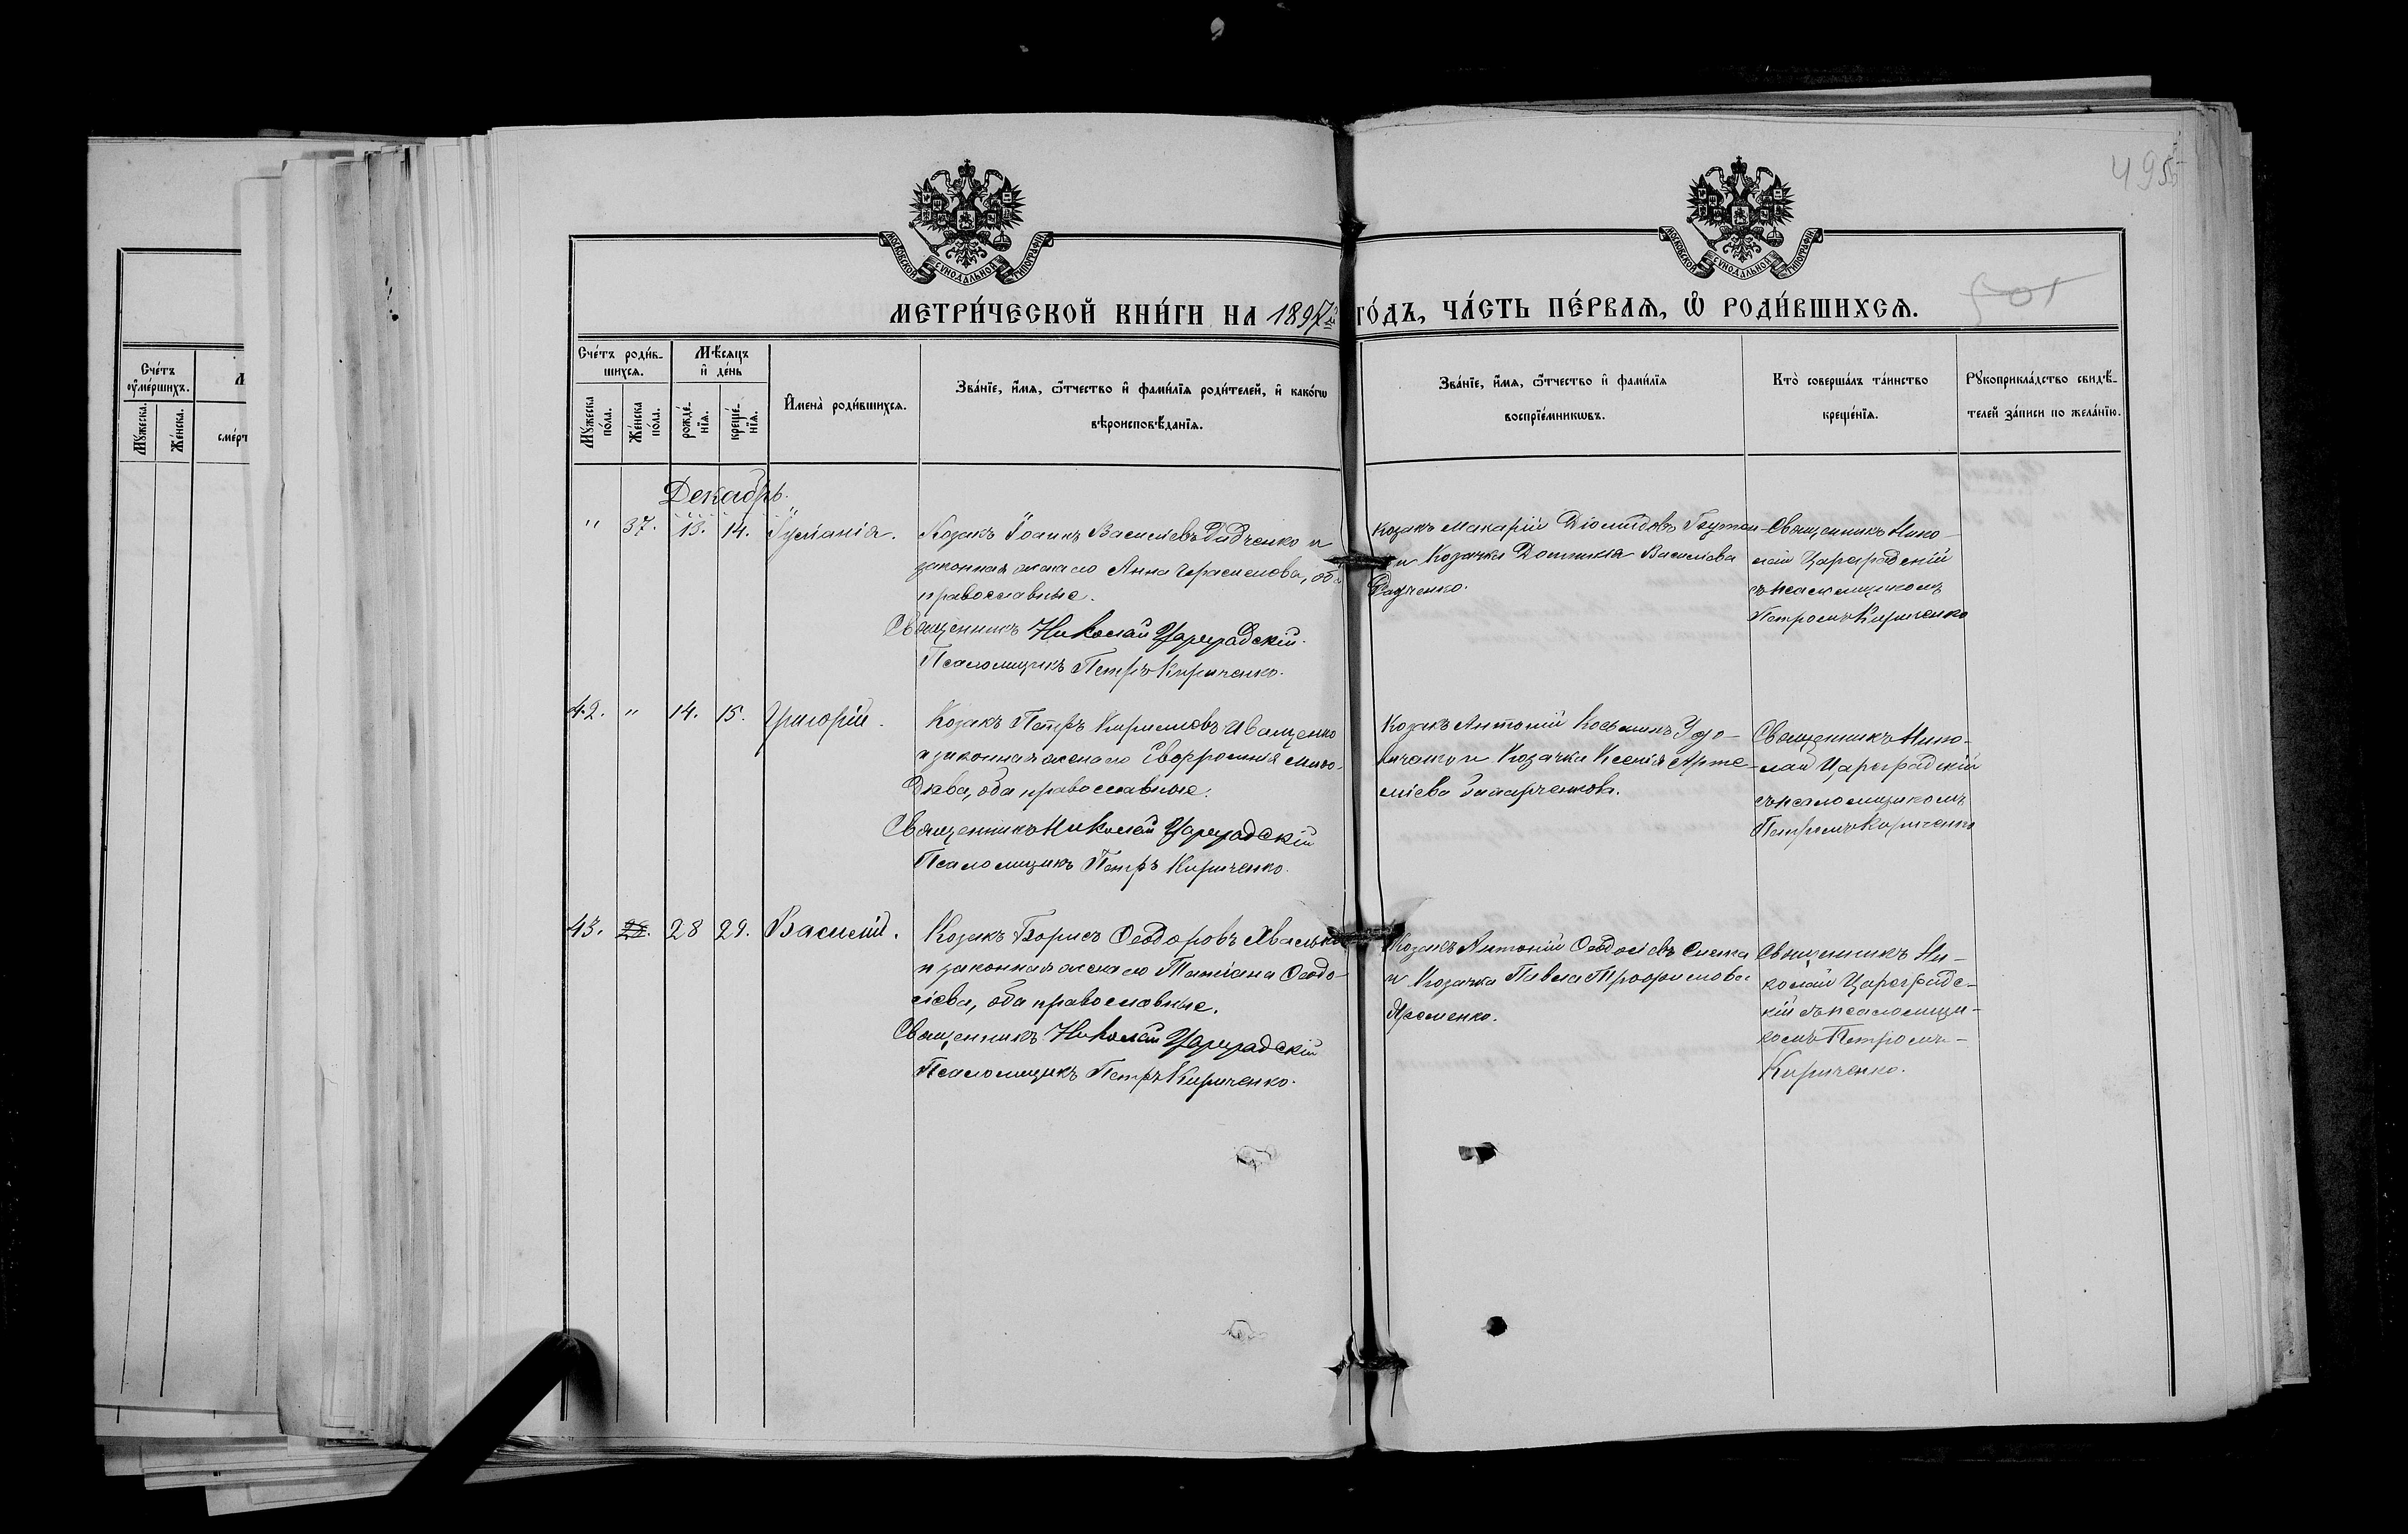 495
501
МОСКОВСКОЙ СѴНОДАЛЬНОЙ ТИПОГРАФІИ
МОСКОВСКОЙ СѴНОДАЛЬНОЙ ТИПОГРАФІИ
МЕТРИ́ЧЕСКОЙ КНИ́ГИ НА 1897й ГО́ДЪ, ЧА́СТЬ ПЕ́РВАѦ, Ѡ҆ РОДИ́ВШИХСѦ.
Сче́тъ
ᲂу҆ме́ршихъ.
Мꙋ́жеска.
Же́нска.
сме́рт
Сче́тъ роди́в-
шихсѧ.
Мꙋ́жеска по́ла.
Же́нска по́ла.
Мѣ́сѧцъ
и҆ де́нь
рожде́-нїѧ.
креще́-нїѧ.
И҆мена̀ роди́вшихсѧ.
Зва́нїе, и҆́мѧ, ѻ҆́тчество и҆ фами́лїѧ роди́телей, и҆ како́гѡ
вѣроисповѣ́данїѧ.
Зва́нїе, и҆́мѧ, ѻ҆́тчество и҆ фами́лїѧ
воспрїе́мникѡвъ.
Кто̀ соверша́лъ та́инство
креще́нїѧ.
Рꙋкоприкла́дство свидѣ́-
телей за́писи по жела́нїю.
Декабрь.
" 37. 13. 14. Іуліанія.
Козакъ Іоаннъ Васильевъ Дадченко и
законная жена его Анна Герасимова, оба
православные.
Священникъ Николай Цареградскій.
Псаломщикъ Петръ Кириченко.
Козакъ Макарій Діомидовъ
и Козачка Домникія Васильева
Дадченко.
Священникъ Нико-
лай Цареградскій
съ псаломщикомъ
Петромъ Кириченко
42. " 14. 15. Григорій.
Козакъ Петръ Кирилловъ Иващенко
и законная жена его Евфросинія
оба православные.
Священникъ Николай Цареградскій
Псаломщикъ Петръ Кириченко.
Козакъ Антоній Косьминъ
и Козачка Ксенія Арте-
міева
Священникъ Нико-
лай Цареградскій
съ псаломщикомъ
Петромъ Кириченко
43. 28 29. Василій.
Козакъ Борисъ Ѳеодоровъ
и законная жена его Татіана Ѳеодо-
сіева, оба православные.
Священникъ Николай Цареградскій
Псаломщикъ Петръ Кириченко.
Козакъ Антоній Ѳеодосіевъ
и Козачка Павла Трофимова
Яременко.
Священникъ Ни-
колай Цареградс-
кій съ псаломщи-
комъ Петромъ-
Кириченко.